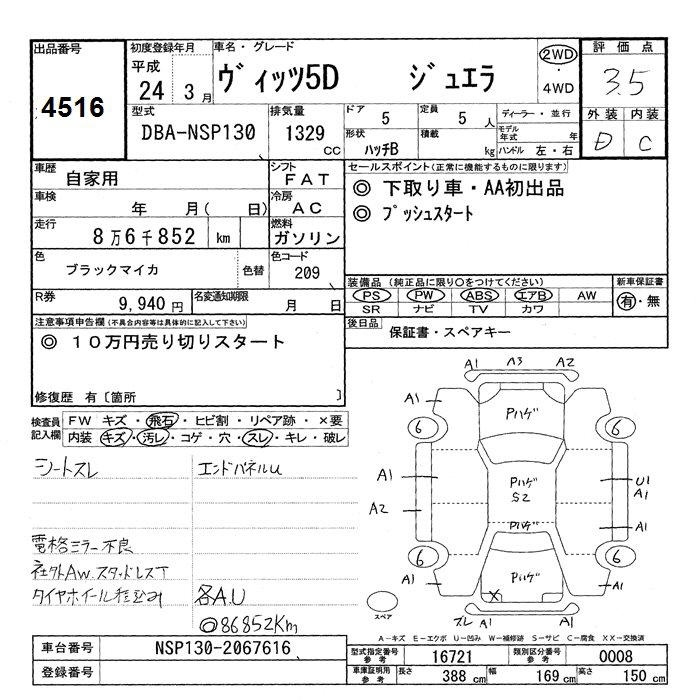 出品番号 初度登録年月 車名・グレード 評価点
4516 平成 24 3月 ヴィッツ5D ジュエラ 2WD・4WD 3.5
型式 排気量 ドア 5 定員 5人 ディーラー・並行 外装 内装
DBA-NSP130 1329cc 形状 ハッチB 積載 kg モデル年式 年 ハンドル 左・右 D C
車歴 自家用 シフト FAT セールスポイント(正常に機能するものに限ります)
車検 年 月( 日) 冷房 AC ◎ 下取り車・AA初出品
走行 8万6千852 km 燃料 ガソリン ◎ プッシュスタート
色 ブラックマイカ 色替 色コード 209
装備品(純正品に限り○をつけてください) 新車保証書
R券 9,940円 名変通知期限 月 日 PS PW ABS エアB AW 有・無
SR ナビ TV カワ
注意事項申告欄(不具合内容等は具体的に記入して下さい) 後日品 保証書・スペアキー
◎ 10万円売り切りスタート
修復歴 有〔箇所 〕
検査員記入欄 FW キズ・飛石・ヒビ割・リペア跡・×要
内装 キズ・汚レ・コゲ・穴・スレ・キレ・破レ
シートスレ エンドパネルU
電格ミラー不良
社外AW.スタッドレスT
タイヤホイール積込み 各A.U
◎86852Km
A1 A3 A2
A1 Pハゲ A1
6 6
A1 Pハゲ S2 U1 A1
A2 Pハゲ A1
6 6
A1 Pハゲ A1
X
スペア スレ A1 A1
A-キズ E-エクボ U-凹み W-補修跡 S-サビ C-腐食 XX-交換済
車台番号 NSP130-2067616 型式指定番号参考 16721 類別区分番号参考 0008
登録番号 車庫証明用参考 長さ 388cm 幅 169cm 高さ 150cm